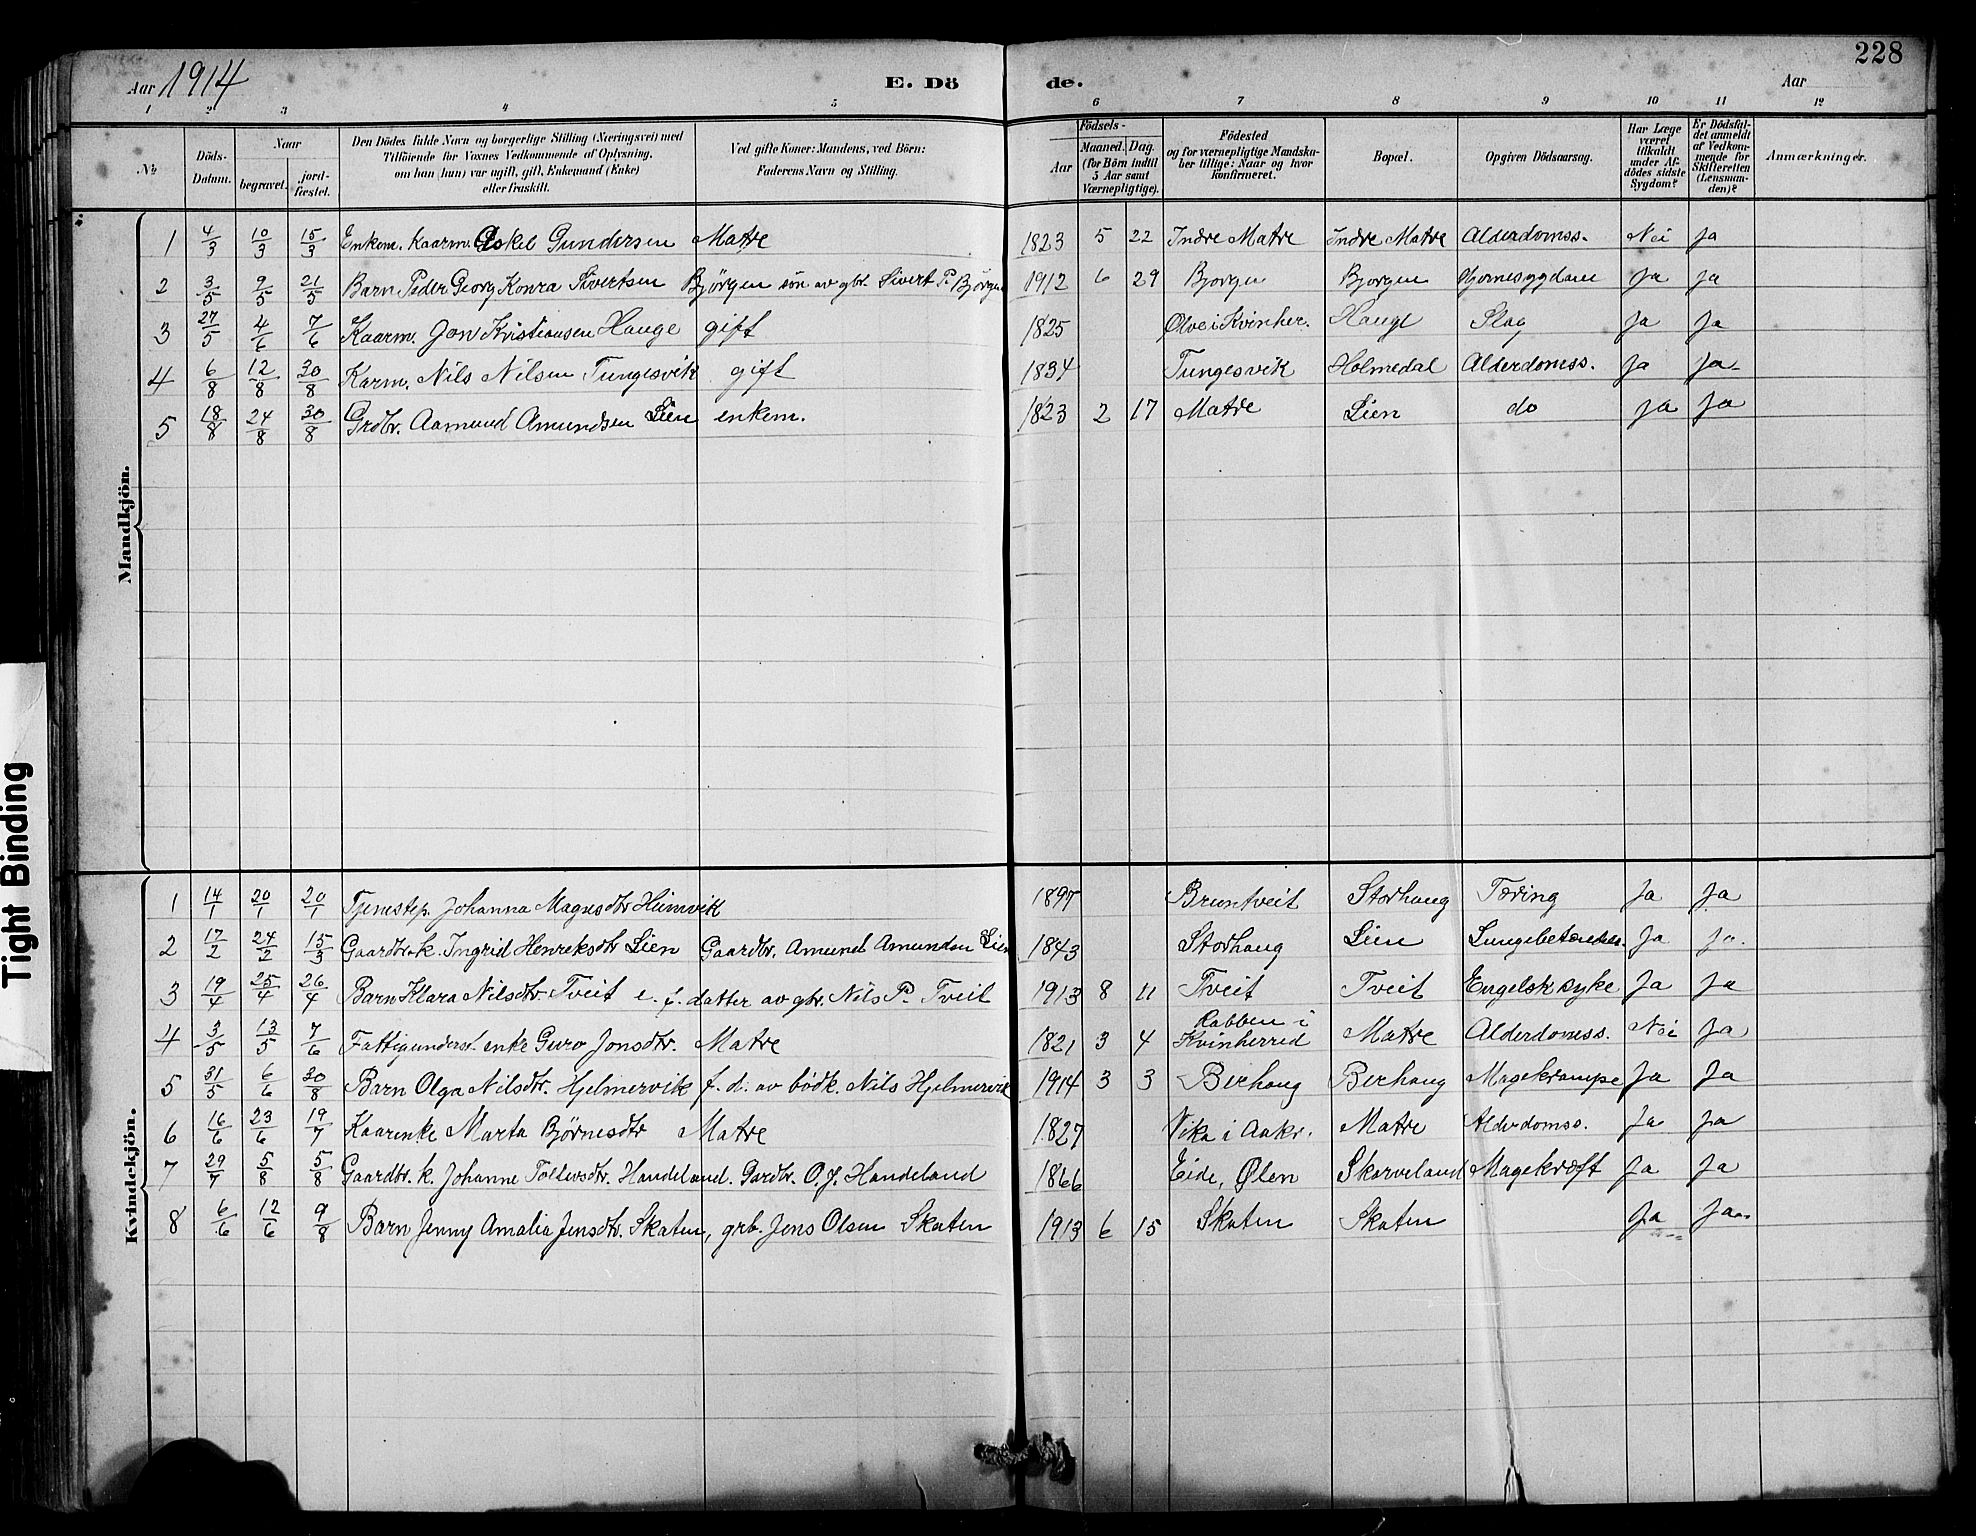 228
Aar 1914 E. Dö de. Aar
1 2 3 4 5 6 7 8 9 10 11 12
№ Döds-Datum. Naar begravet. jord-fæstet. Den Dödes fulde Navn og borgerlige Stilling (Næringsvei) med Tilföiende for Voxnes Vedkommende af Oplysning, om han (hun) var ugift, gift, Enkemand (Enke) eller fraskilt. Ved gifte Koner: Mandens, ved Börn: Faderens Navn og Stilling. Födsels- Aar Maaned. Dag. (for Börn indtil 5 Aar samt Værnepligtige). Födested og for værnepligtige Mandskaber tillige: Naar og hvor konfirmeret. Bopæl. Opgiven Dödsaarsag. Har Læge været tilkaldt under Afdödes sidste Sygdom? Er Dödsfaldet anmeldt af Vedkommende for Skifteretten (Lensmanden)? Anmærkninger.
Mandkjön.
1 4/3 10/3 15/3 Enkem. kaarm. Eskel Gundersen Matre 1823 5 22 Indre Matre Indre Matre Alderdomss. Nei Ja
2 3/5 9/5 21/5 Barn Peder Georg Konra Sivertsen Bjørgen søn av gbr. Sivert P. Bjørgen 1912 6 29 Bjorgen Bjorgen Hjernesygdom Ja Ja
3 27/5 4/6 7/6 Kaarm. Jon Kristiansen Hauge gift 1825 Ølve i Kvinher. Hauge Slag Ja Ja
4 6/8 12/8 30/8 Karm. Nils Nilsen Tungesvik gift 1834 Tungesvik Holmedal Alderdomss. Ja Ja
5 18/8 24/8 30/8 Grdbr. Aamund Amundsen Lien enkem. 1823 2 17 Matre Lien do Ja Ja
Kvindekjön.
1 14/1 20/1 20/1 Tjenestep. Johanna Magnsdtr Heimvik 1897 Bruntveit Storhaug Tæring Ja Ja
2 17/2 24/2 15/3 Gaardbr.k. Ingrid Henreksdtr Lien Gaardbr. Amund Amunden Lien 1843 Storhaug Lien Lungebetændels. Ja Ja
3 19/4 25/4 26/4 Barn Klara Nilsdtr. Tveit e. f. datter av gbr. Nils P. Tveit 1913 8 11 Tveit Tveit Engelsk syke Ja Ja
4 3/5 13/5 7/6 Fattigunderst. enke Guro Jonsdtr. Matre 1821 3 4 Rabben i Kvinherred Matre Alderdomss. Nei Ja
5 31/5 6/6 30/8 Barn Olga Nilsdtr. Hjelmervik f. d. av bödk. Nils Hjelmervik 1914 3 3 Berhaug Berhaug Magekrampe Ja Ja
6 16/6 23/6 19/7 Kaarenke Marta Bjørnesdtr Matre 1827 Vika i Aakr. Matre Alderdomss. Ja Ja
7 29/7 5/8 5/8 Gaardbr. k. Johanne Tollevsdtr. Handeland. Gardbr. O. J. Handeland 1866 Eide, Ølen Skorveland Magekræft Ja Ja
8 6/6 12/6 9/8 Barn Jenny Amalia Jensdtr. Skaten, grb. Jens Olsen Skaten 1913 6 15 Skaten Skaten Ja Ja
Tight Binding